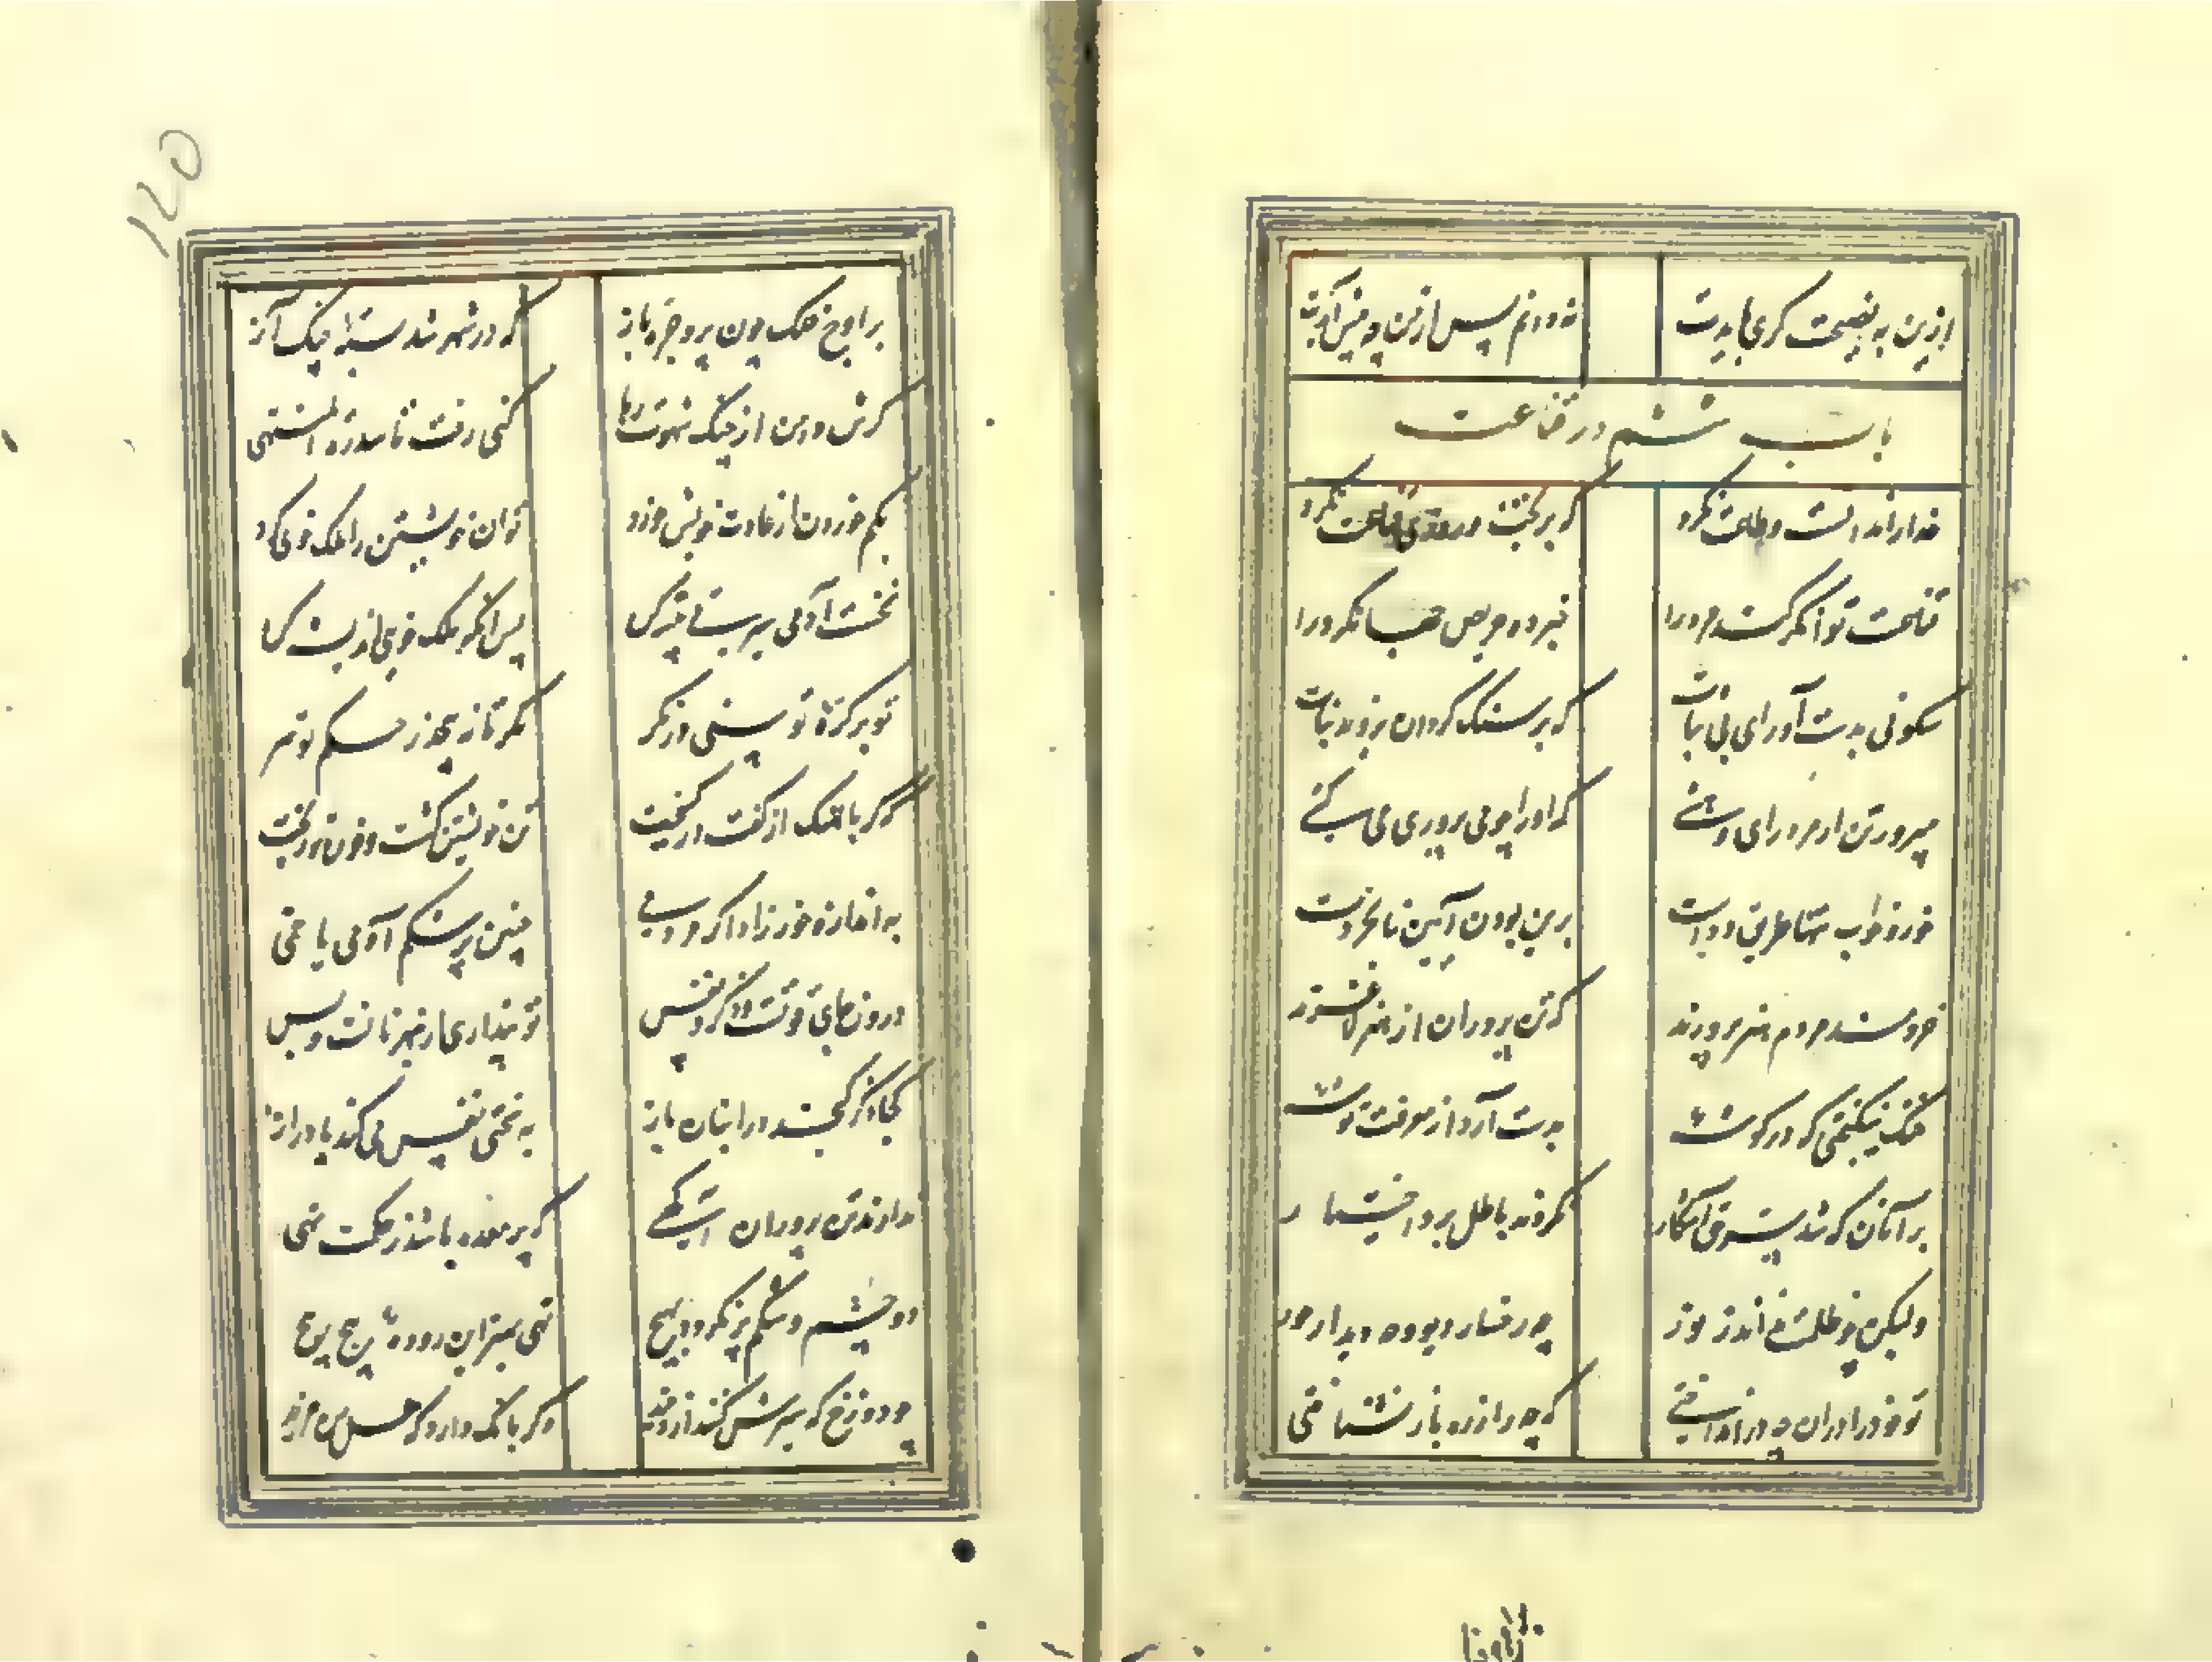 ازین به نصیحت گری بایدت
ندانم پس از من چه پیش آیدت
باب ششم در قناعت
خدا را ندانست و طاعت نکرد
که بر بخت و روزی قناعت نکرد
قناعت توانگر کند مرد را
خبر ده حریص جهانگرد را
سکونی بدست آور ای بی ثبات
که بر سنگ گردان نروید نبات
مپرور تن ار مرد رای و هشی
که او را چو می پروری می کشی
خور و خواب تنها طریق ددست
برین بودن آیین نابخردست
خردمند مردم هنر پرورند
که تن پروران از هنر لاغرند
خنک نیکبختی که در گوشه
بدست آرد از معرفت توشه
بر آنان که شد سر حق آشکار
نکردند باطل برو اختیار
ولیکن چو ظلمت نداند ز نور
چه رخسار دیوو چه دیدار حور
تو خود را از آن در چه انداختی
که چه را ز ره باز نشناختی
بر اوج فلک چون پرد جره باز
که در شهپرش بسته چنگ آز
گرش دامن از چنگ شهوت رها
کنی رفت تا سدرة المنتهی
بکم خوردن از عادت خویش خورد
توان خویشتن را ملک خوی کرد
نخست آدمی سیرتی پیشه کن
پس آنگه ملک خویی اندیشه کن
تو بر کره توسنی در نگر
نگر تا نپیچد ز حکم تو سر
که گر پالهنگ از کفت در گسیخت
تن خویشتن کشت و خون تو ریخت
به اندازه خور زاد اگر مردمی
چنین پر شکم آدمی یا خمی
درون جای قوتست و ذکر و نفس
تو پنداری از بهر نانست و بس
کجا ذکر گنجد در انبان باز
به سختی نفس می کند پا دراز
ندارند تن پروران آگهی
که پر معده باشد ز حکمت تهی
دو چشم و شکم پر نگردد بهیچ
تهی بهتر این روده پیچ پیچ
چو دوزخ که سیرش کنند از وقید
دگر بانگ دارد که هل من مزید
۱۲۵